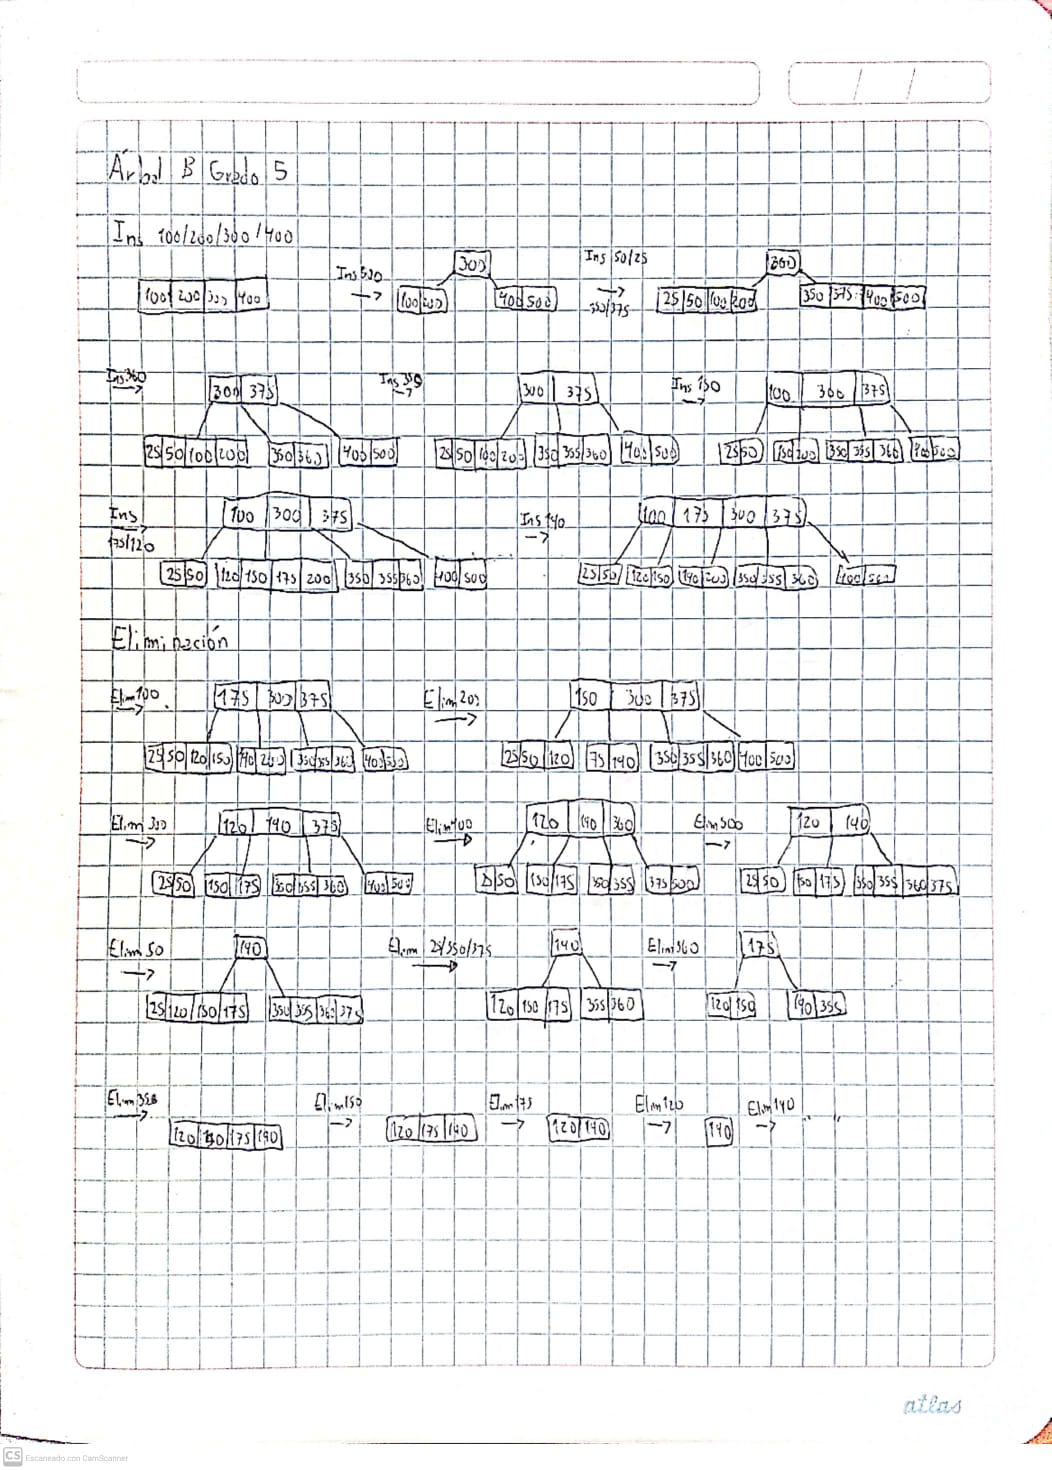 Árbol B Grado 5
Ins 100/200/300/400
100 200 300 400
Ins 500
300
100 200 400 500
Ins 50/25
350/375
300
25 50 100 200 350 375 400 500
Ins 360
300 375
25 50 100 200 350 360 400 500
Ins 355
300 375
25 50 100 200 350 355 360 400 500
Ins 150
100 300 375
25 50 150 200 350 355 360 400 500
Ins
175/120
100 300 375
25 50 120 150 175 200 350 355 360 400 500
Ins 190
100 175 300 375
25 50 120 150 190 200 350 355 360 400 500
Eliminación
Elim 100
175 300 375
25 50 120 150 190 200 350 355 360 400 500
Elim 200
150 300 375
25 50 120 175 190 350 355 360 400 500
Elim 300
120 190 375
25 50 150 175 350 355 360 400 500
Elim 400
120 190 360
25 50 150 175 350 355 375 500
Elim 500
120 190
25 50 150 175 350 355 360 375
Elim 50
190
25 120 150 175 350 355 360 375
Elim 25/350/375
190
120 150 175 355 360
Elim 360
175
120 150 190 355
Elim 355
120 150 175 190
Elim 150
120 175 190
Elim 175
120 190
Elim 120
190
Elim 190
" "
atlas
CS Escaneado con CamScanner